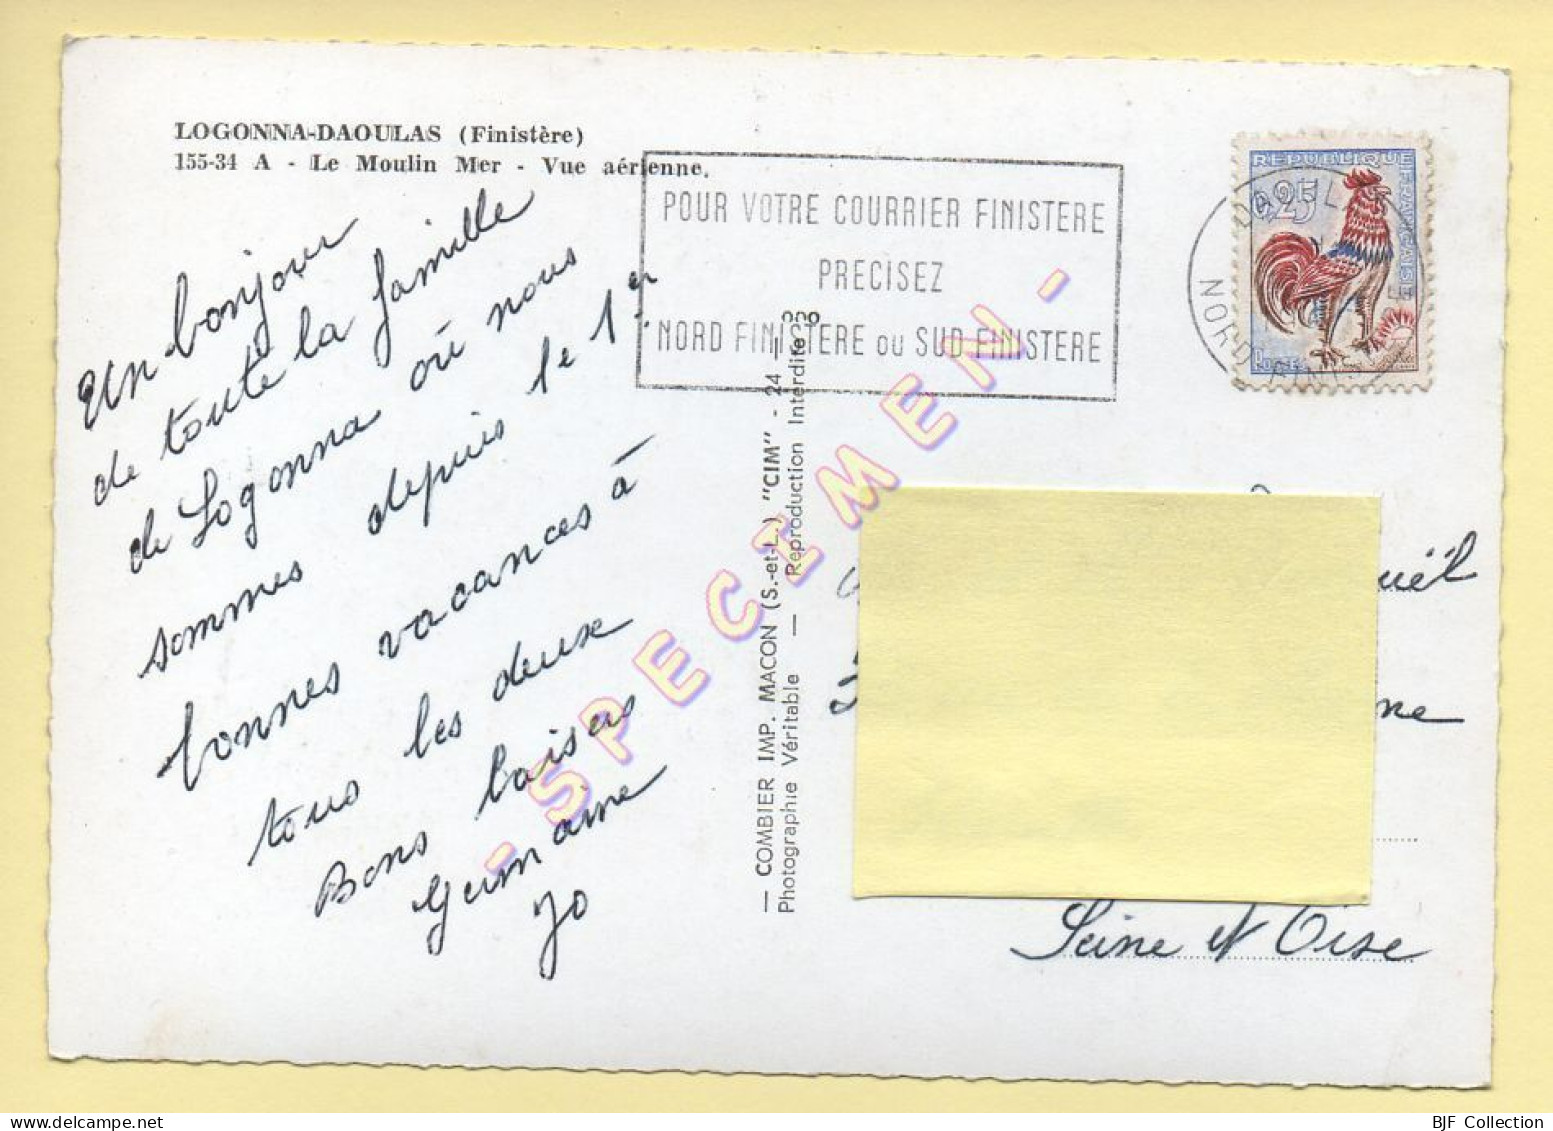 LOGONNA-DAOULAS (Finistère)
155-34 A - Le Moulin Mer - Vue aérienne.
Un bonjour
de toute la famille
de Logonna où nous
sommes depuis le 1er.
bonnes vacances à
tous les deux
Bons baisers
Germaine
Jo
POUR VOTRE COURRIER FINISTERE
PRECISEZ
NORD FINISTERE OU SUD FINISTERE
REPUBLIQUE FRANCAISE
0,25
POSTES
DAOUL
NORD FINI
— COMBIER IMP. MACON (S.-et-L.) "CIM" - 24 —
Photographie Véritable — Reproduction Interdite
- SPECIMEN -
uël
ne
Seine et Oise
BJF Collection